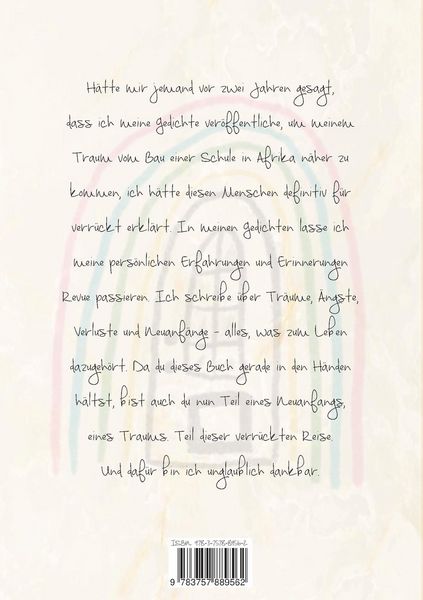 Hätte mir jemand vor zwei Jahren gesagt,
dass ich meine Gedichte veröffentliche, um meinem
Traum vom Bau einer Schule in Afrika näher zu
kommen, ich hätte diesen Menschen definitiv für
verrückt erklärt. In meinen Gedichten lasse ich
meine persönlichen Erfahrungen und Erinnerungen
Revue passieren. Ich schreibe über Träume, Ängste,
Verluste und Neuanfänge - alles, was zum Leben
dazugehört. Da du dieses Buch gerade in den Händen
hältst, bist auch du nun Teil eines Neuanfangs,
eines Traums. Teil dieser verrückten Reise.
Und dafür bin ich unglaublich dankbar.
ISBN 978-3-7578-8956-2
9 783757 889562